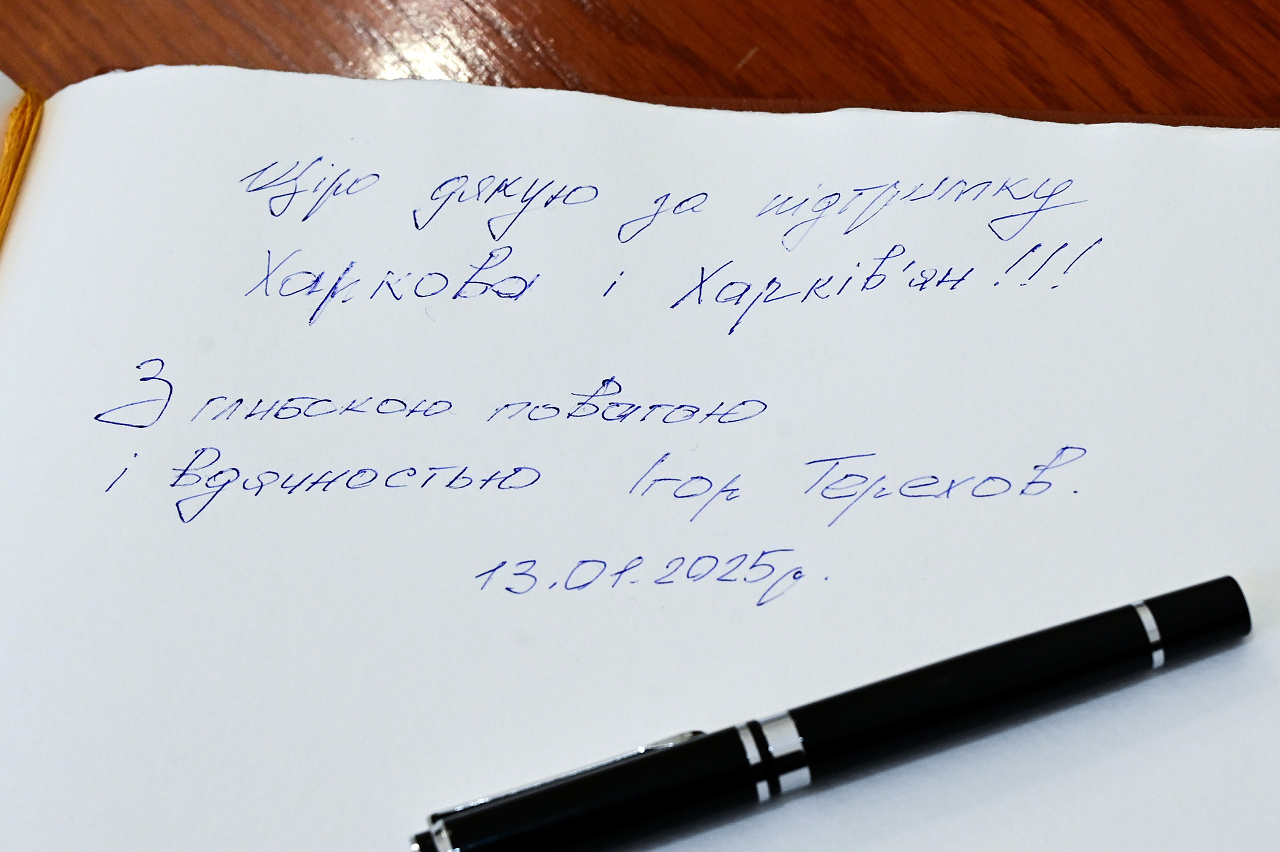 Щіро дякую за підтримку
Харкова і Харків'ян!!!
З глибокою повагою
і вдячностью Ігор Терехов.
13.01.2025р.